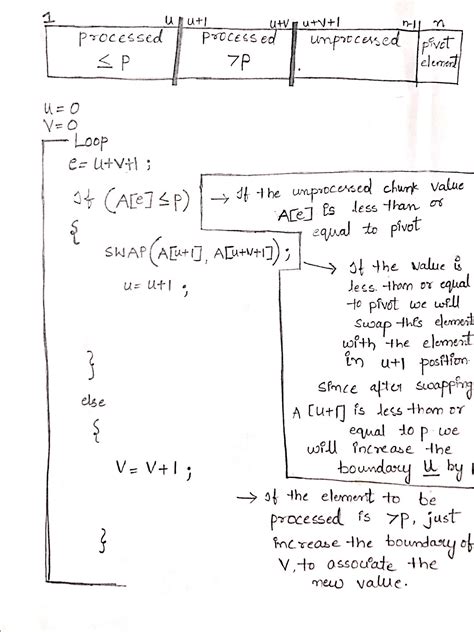 1 u u+1 u+v u+v+1 n-1 n
processed processed unprocessed pivot
≤ p >p element
u=0
v=0
Loop
e= u+v+1 ;
If (A[e] ≤ p) → If the unprocessed chunk value
A[e] is less than or
equal to pivot
{
SWAP(A[u+1], A[u+v+1]);
→ If the value is
u = u+1 ;
less than or equal
to pivot we will
swap this element
with the element
in u+1 position.
}
since after swapping
else
A [u+1] is less than or
{
equal to p we
will increase the
V = V+1 ;
boundary U by
→ If the element to be
processed is >p, just
}
increase the boundary of
V, to associate the
new value.